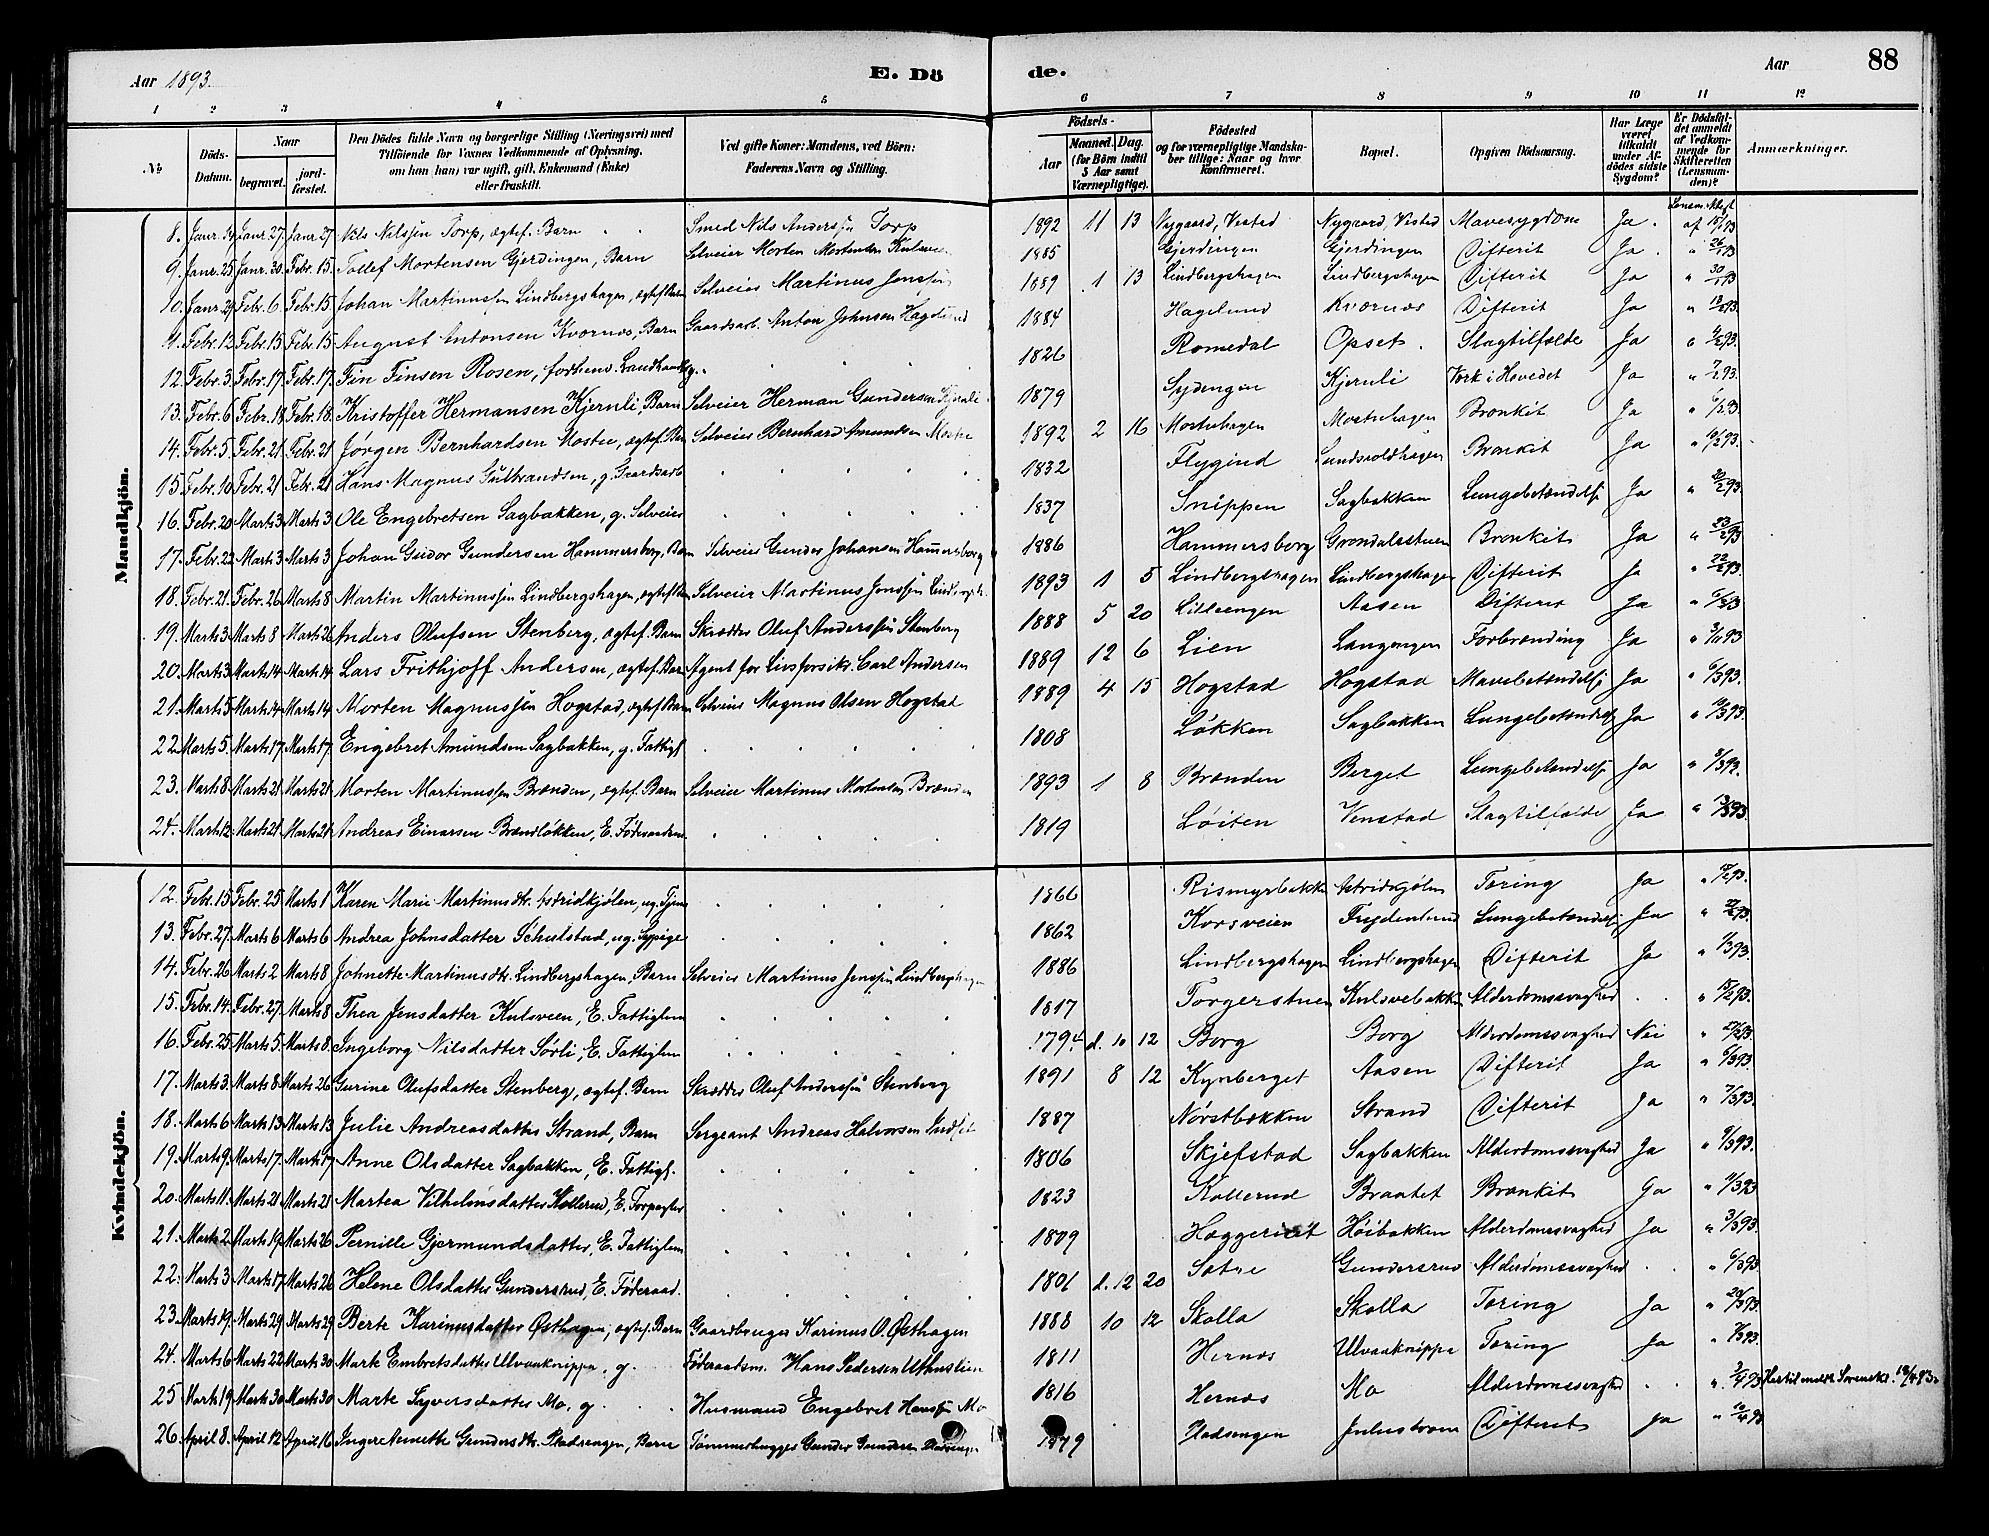 Aar 1893.
E. Dö
de.
Aar
88
1 2 3 4 5 6 7 8 9 10 11 12
No
Döds-Datum.
Naar
begravet.
jordfæstet.
Den Dödes fulde Navn og borgerlige Stilling (Næringsvei) med Tilföiende for Voxnes Vedkommende af Oplysning, om han (hun) var ugift, gift, Enkemand (Enke) eller fraskilt.
Ved gifte Koner: Mandens, ved Börn: Faderens Navn og Stilling.
Födsels-
Aar
Maaned. Dag.
(for Börn indtil 5 Aar samt Værnepligtige).
Födested og for værnepligtige Mandskaber tillige: Naar og hvor Konfirmeret.
Bopæl.
Opgiven Dödsaarsag.
Har Læge været tilkaldt under Afdödes sidste Sygdom?
Er Dödsfaldet anmeldt af Vedkommende for Skifteretten (Lensmanden)?
Anmærkninger.
Mandkjön.
8. Janr. Janr. 27. Janr. 27 Nils Nilssen Torp, ægtef. Barn Smed Nils Anderssen Torp 1892 11 13 Nygaard, Vestad Nygaard, Vestad Mavesygdom Ja.
9. Janr. 25 Janr. 30. Febr. 15. Tollef Mortensen Gjerdingen, Barn Selveier Morten Mortensen 1885 Gjerdingen Gjerdingen Difterit Ja.
10. Janr. 29 Febr. 6. Febr. 15. Johan Martinussen Lindbergshagen, ægtef. Barn Selveier Martinus Jonssen 1889 1 13 Lindbergshagen Lindbergshagen Difterit Ja
11. Febr. 12 Febr. 15 Febr. 15 August Antonsen Kvernæs, Barn Gaardsarb. Anton Johnsen Hagelund 1884 Hagelund Kvernæs Difterit Ja
12. Febr. 3. Febr. 17. Febr. 17. Fin Finsen Rosen, forhenv. Landhandler 1826 Romedal Opset Slagtilfælde Ja
13. Febr. 6 Febr. 18 Febr. 18. Kristoffer Hermansen Kjernli, Barn Selveier Herman Gundersen Kjernli 1879 Sydengen Kjernli Værk i Hovedet Ja
14. Febr. 5 Febr. 21 Febr. 21 Jørgen Bernhardsen Mostue, ægtef. Barn Selveier Bernhard Amundsen Mostue 1892 2 16 Mostuhagen Mostuhagen Bronkit Ja
15. Febr. 10 Febr. 21. Febr. 21 Hans Magnus Gulbrandsen, g. Gaardsarb. 1832 Flygind Sundvoldhagen Bronkit Ja
16. Febr. 20 Marts 3 Marts 3 Ole Engebretsen Sagbakken, g. Selveier 1837 Snippen Sagbakken Lungebetændelse Ja
17. Febr. 22 Marts 3 Marts 3 Johan Gudor Gundersen Hammersborg, Barn Selveier Gunder Johansen Hammersborg 1886 Hammersborg Grøndalsstuen Bronkit Ja
18. Febr. 21. Febr. 26 Marts 8 Martin Martinussen Lindbergshagen, ægtef. Barn Selveier Martinus Jonssen Lindbergsh. 1893 1 5 Lindbergshagen Lindbergshagen Difterit Ja
19. Marts 3. Marts 8 Marts 26 Anders Olufsen Stenberg, ægtef. Barn Skrædder Oluf Anderssen Stenberg 1888 5 20 Lilleengen Aasen Difterit Ja
20. Marts 3. Marts 14 Marts 14 Lars Frithjoff Andersen, ægtef. Barn Agent for Livsforsikr. Carl Andersen 1889 12 6 Lien Langengen Forbrænding Ja
21. Marts 5 Marts 14 Marts 14 Morten Magnussen Hogstad, ægtef. Barn Selveier Magnus Olsen Hogstad 1889 4 15 Hogstad Hogstad Mavebetændelse Ja
22. Marts 5. Marts 17 Marts 17. Engebret Amundsen Sagbakken, g. Fattigl. 1808 Løkken Sagbakken Lungebetændelse Ja
23. Marts 8 Marts 21 Marts 21 Morten Martinussen Brænden, ægtef. Barn Selveier Martinus Mortensen Brænden 1893 1 8 Brænden Berget Lungebetændelse Ja
24. Marts 12. Marts 21 Marts 21 Andreas Einarsen Brændløkken, E. Føderaadsm. 1819 Løiten Venstad Slagtilfælde Ja
Kvindekjön.
12. Febr. 15 Febr. 25 Marts 1 Karen Marie Martinusdtr. Astridkjølen, ug. Tjen. 1866 Rismyrbakk. Astridkjølen Tæring Ja
13. Febr. 27. Marts 6 Marts 6 Andrea Johnsdatter Schulstad, ug. Sypige 1862 Korsveien Frydenlund Lungebetændelse Ja
14. Febr. 26 Marts 2 Marts 8 Johnette Martinusdtr. Lindbergshagen, Barn Selveier Martinus Jonssen Lindbergshagen 1886 Lindbergshagen Lindbergshagen Difterit Ja
15. Febr. 14. Febr. 27 Marts 8 Thea Jensdatter Kulsveen, E. Fattiglem 1817 Torgerstuen Kulsvebakken Alderdomssvaghed
16. Febr. 25 Marts 5. Marts 8. Ingeborg Nilsdatter Sørli, E. Fattiglem 1794 d. 10 12 Borg Borg Alderdomssvaghed Nei
17. Marts 3. Marts 8 Marts 26 Gurine Olufsdatter Stenberg, ægtef. Barn Skrædder Oluf Anderssen Stenberg 1891 8 12 Kynberget Aasen Difterit Ja
18. Marts 6 Marts 13 Marts 13 Julie Andreasdatter Strand, Barn Sergeant Andreas Halvorsen 1887 Nørstbækken Strand Difterit Ja
19. Marts 9. Marts 17. Marts 17 Anne Olsdatter Sagbakken, E. Fattigl. 1806 Skjefstad Sagbakken Alderdomssvaghed Ja
20. Marts 11. Marts 21 Marts 21 Martea Vilhelmsdatter Kollerud, E. 1823 Kollerud Braatet Bronkit Ja
21. Marts 2 Marts 19. Marts 26 Pernille Gjermundsdatter, E. Fattiglem 1809 Høibakken Alderdomssvaghed Ja
22. Marts 3 Marts 17 Marts 26 Helene Olsdatter Gundersrud, E. Føderaad. 1801 d. 12 20 Sætre Gundersrud Alderdomssvaghed
23. Marts 19. Marts 29 Marts 29 Berte Karinusdatter Østhagen, ægtef. Barn Gaardbruger Karinus O. Østhagen 1888 10 12 Skolla Skolla Tæring Ja
24. Marts 6 Marts 22 Marts 30 Marte Embretsdatter Ulvaaknippa, g. Føderaadsm. Hans Pedersen 1811 Hernæs Ulvaaknippa Tæring Ja
25 Marts 19 Marts 30 Marts 30 Marte Sagversdatter Mo, g. Husmand Engebret Hanssen Mo 1816 Hernæs Mo Alderdomssvaghed
26. April 8. April 12 April 16 Inger Annette Gundersdtr. Pladsengen, Barn Tømmerhugger Gunder Gundersen 1879 Pladsengen Julustrøm Difterit Ja